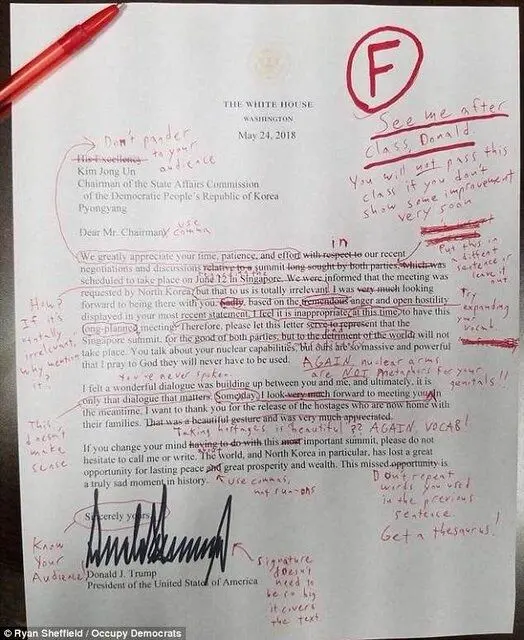 F
See me after
class, Donald.
You will not pass this
class if you don't
show some improvement
very soon
THE WHITE HOUSE
WASHINGTON
May 24, 2018
Don't pander
to your
audience
His Excellency
Kim Jong Un
Chairman of the State Affairs Commission
of the Democratic People's Republic of Korea
Pyongyang
use
comma
Dear Mr. Chairman:
in
We greatly appreciate your time, patience, and effort with respect to our recent
negotiations and discussions relative to a summit long sought by both parties, which was
scheduled to take place on June 12 in Singapore. We were informed that the meeting was
requested by North Korea, but that to us is totally irrelevant. I was very much looking
forward to being there with you. Sadly, based on the tremendous anger and open hostility
displayed in your most recent statement, I feel it is inappropriate, at this time, to have this
long-planned meeting. Therefore, please let this letter serve to represent that the
Singapore summit, for the good of both parties, but to the detriment of the world, will not
take place. You talk about your nuclear capabilities, but ours are so massive and powerful
that I pray to God they will never have to be used.
Put this in
different
sentence or
leave it out
Try
expanding
your
vocab
How?
If it's
totally
irrelevant,
why mention
it..
AGAIN, nuclear arms
are NOT metaphors for your
genitals!!
You've never spoken
I felt a wonderful dialogue was building up between you and me, and ultimately, it is
only that dialogue that matters. Someday, I look very much forward to meeting you. In
the meantime, I want to thank you for the release of the hostages who are now home with
their families. That was a beautiful gesture and was very much appreciated.
This
doesn't
make
sense
Taking hostages is beautiful?? AGAIN, VOCAB!
If you change your mind having to do with this most important summit, please do not
hesitate to call me or write. The world, and North Korea in particular, has lost a great
opportunity for lasting peace and great prosperity and wealth. This missed opportunity is
a truly sad moment in history.
use commas,
not run-ons
Don't repeat
words you used
in the previous
sentence.
Get a thesaurus!
Sincerely yours,
Know
Your
Audience
Donald J. Trump
President of the United States of America
Signature
doesn't
need to
be so big
it covers
the text.
© Ryan Sheffield / Occupy Democrats